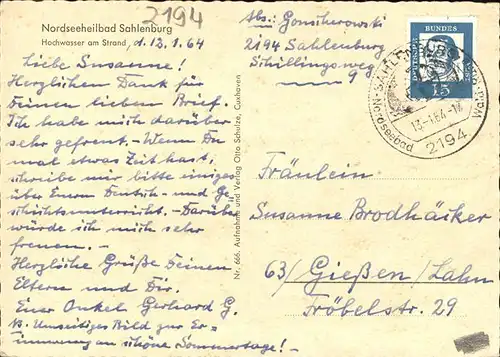 2194
Nordseeheilbad Sahlenburg
Hochwasser am Strand, d. 13.1.64
Liebe Susanne!
Herzlichen Dank für
Deinen lieben Brief.
Ich habe mich darüber
sehr gefreut. - Wenn Du
mal etwas Zeit hast,
schreibe mir bitte einiges
über Euern Deutsch- und Ge
schichtsunterricht. - Darüber
würde ich mich sehr
freuen. -
Herzliche Grüße Deinen
Eltern und Dir.
Euer Onkel Gerhard G.
N. Umseitiges Bild zur Er=
innerung an schöne Sommertage! -
Nr. 666. Aufnahme und Verlag Otto Schulze, Cuxhaven
Abs: Gonscherowski
2194 Sahlenburg
Schillingsweg
9
DEUTSCHE BUNDESPOST
15
Nordseebad
13.-1.64.-1
2194
Fräulein
Susanne Brodhäcker
63/ Gießen/Lahn
Fröbelstr. 29